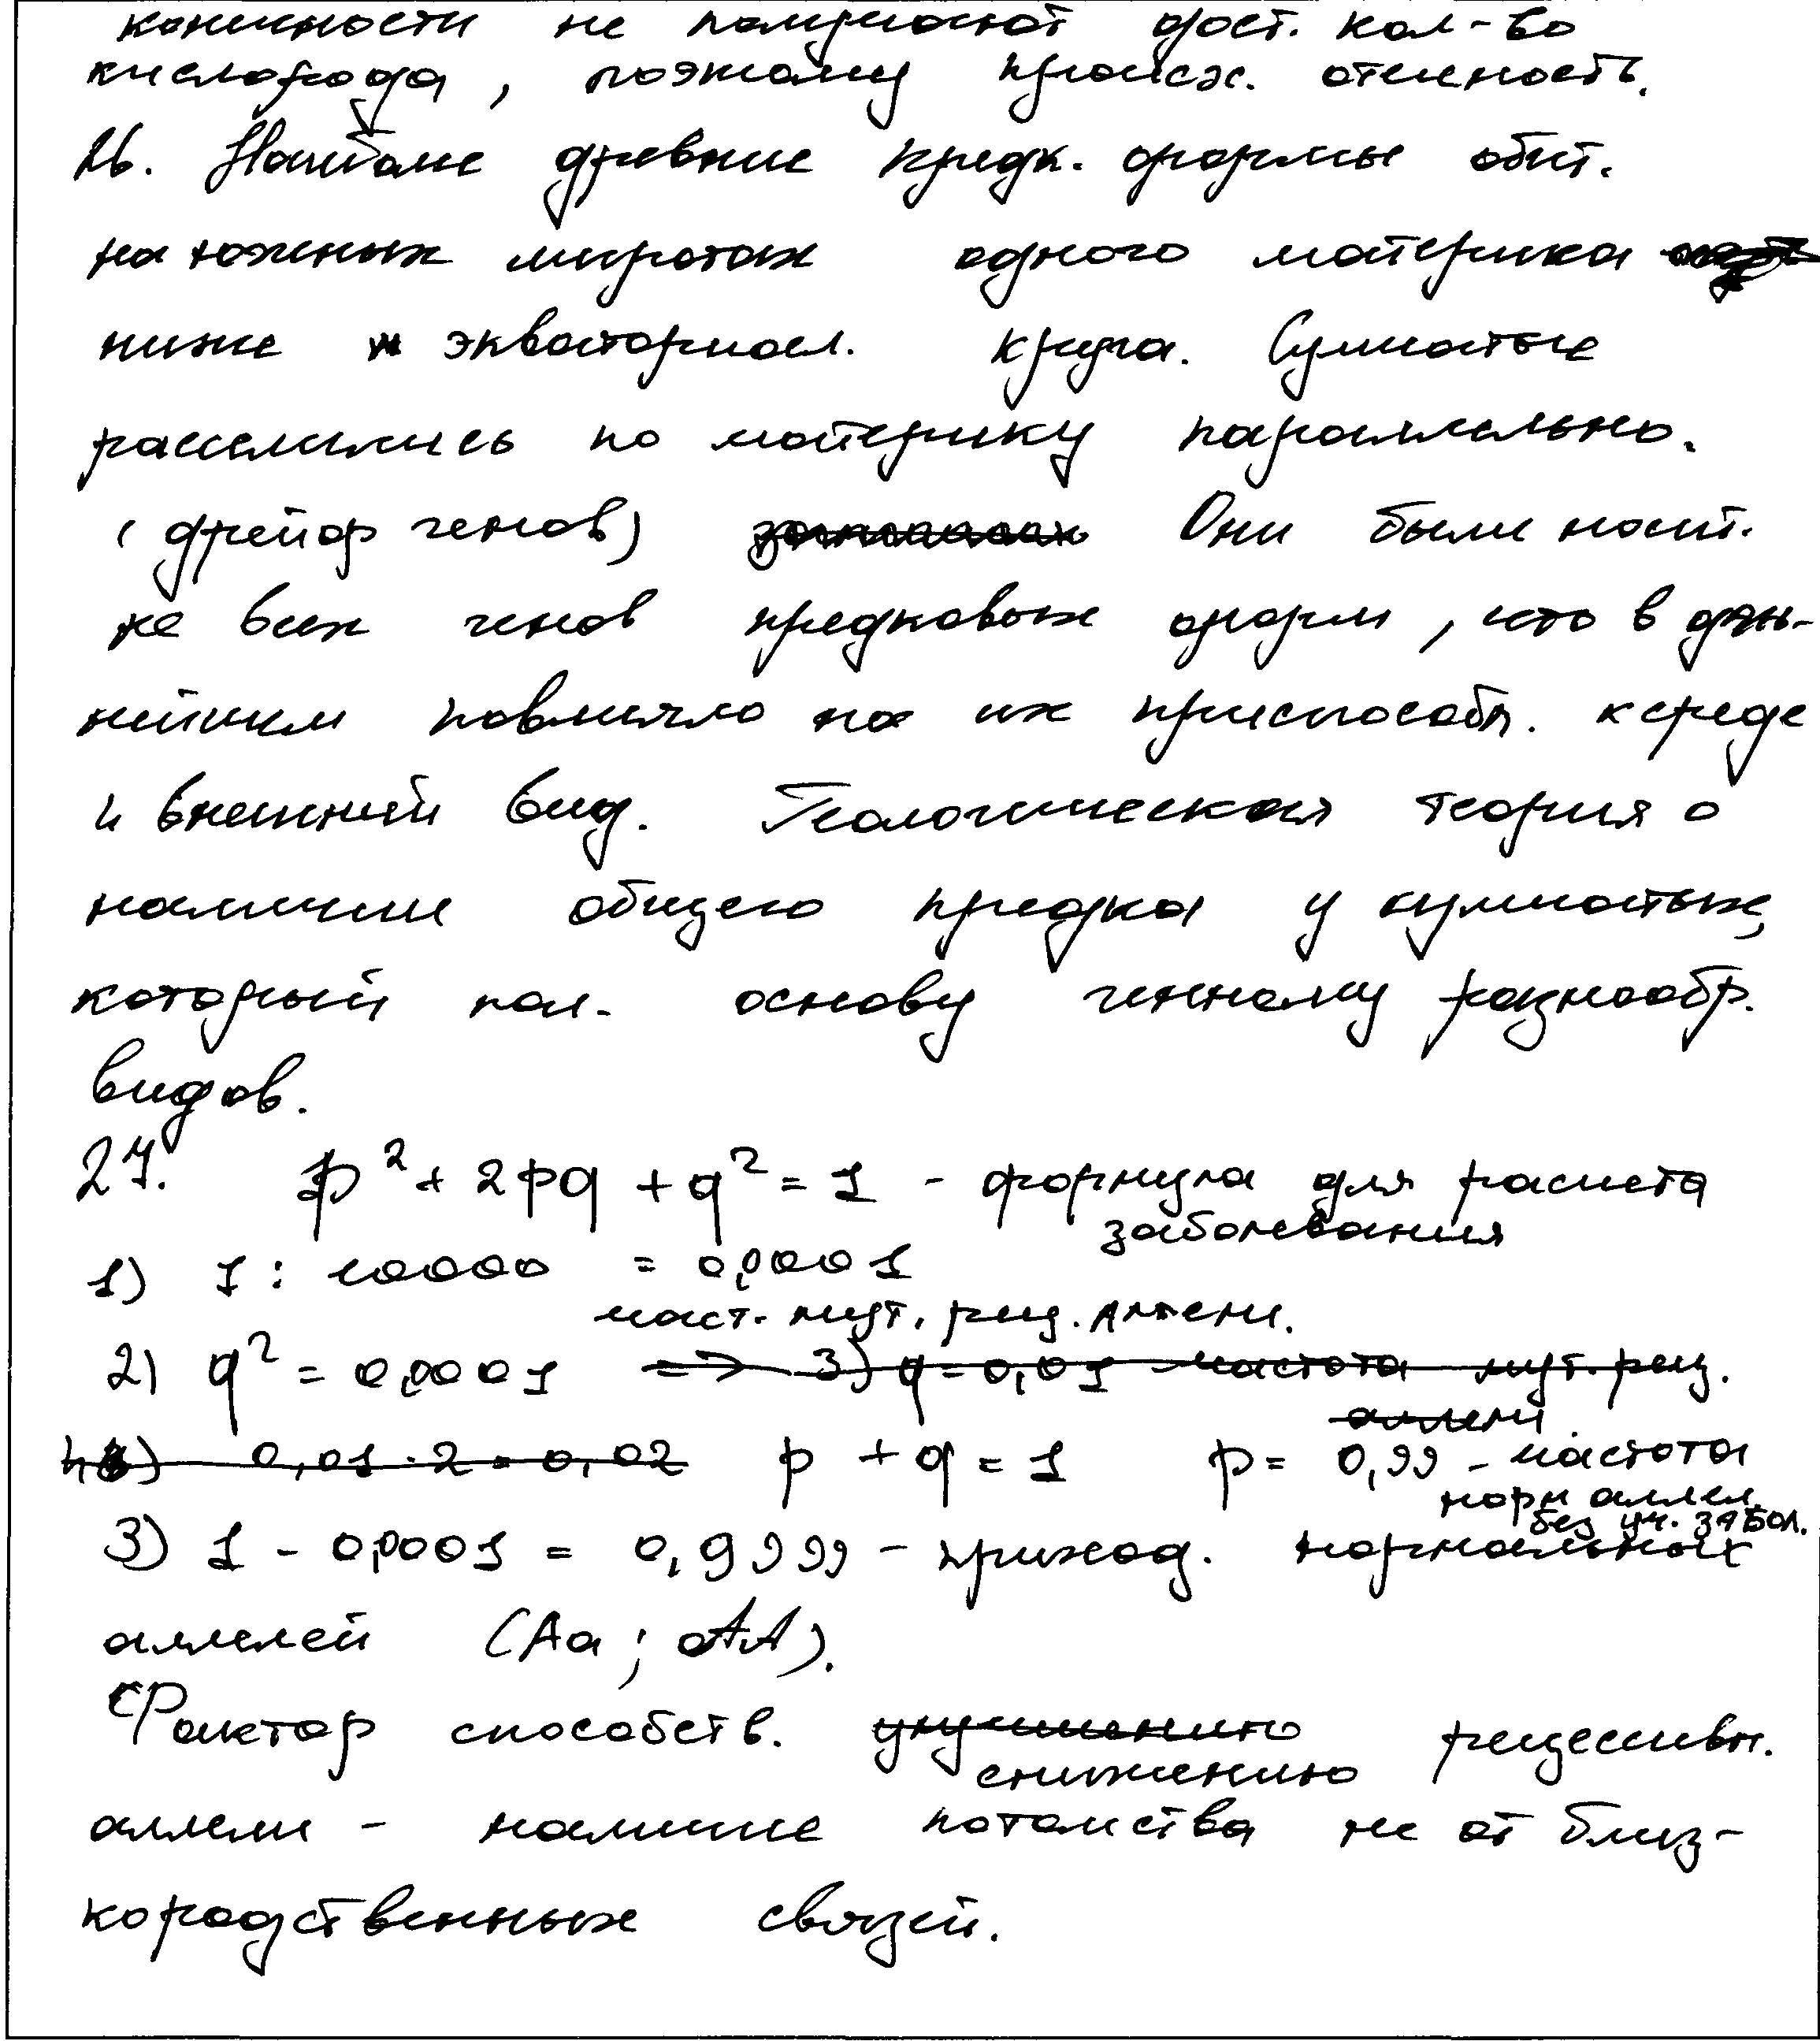 конечности не получают дост. кол-во
кислорода, поэтому происх. отечность.
26. Наиболе древние предк. формы обит.
на южных широтах одного материка
ниже экваториал. круга. Сумчатые
расселились по материку параллельно.
(дрейф генов) Они были носит.
не всех генов предковых форм, что в даль-
нейшем повлияло на их приспособл. к среде
и внешний вид. Геологическая теория о
наличие общего предка у сумчатых,
который пол. основу генному разнообр.
видов.
27. p² + 2pq + q² = 1 - формула для расчета
заболевания
1) 1 : 10000 = 0,0001
част. мут. рец. аллели.
2) q² = 0,0001 => 3) q = 0,01 частота мут. рец.
аллели.
0,01 · 2 = 0,02 p + q = 1 p = 0,99 - частота
норм аллел.
без уч. забол.
3) 1 - 0,0001 = 0,9999 - приход. нормальных
аллелей (Aa; AA).
Фактор способств. рецессивн.
снижению
аллели - наличие потомства не от близ-
кородственных связей.